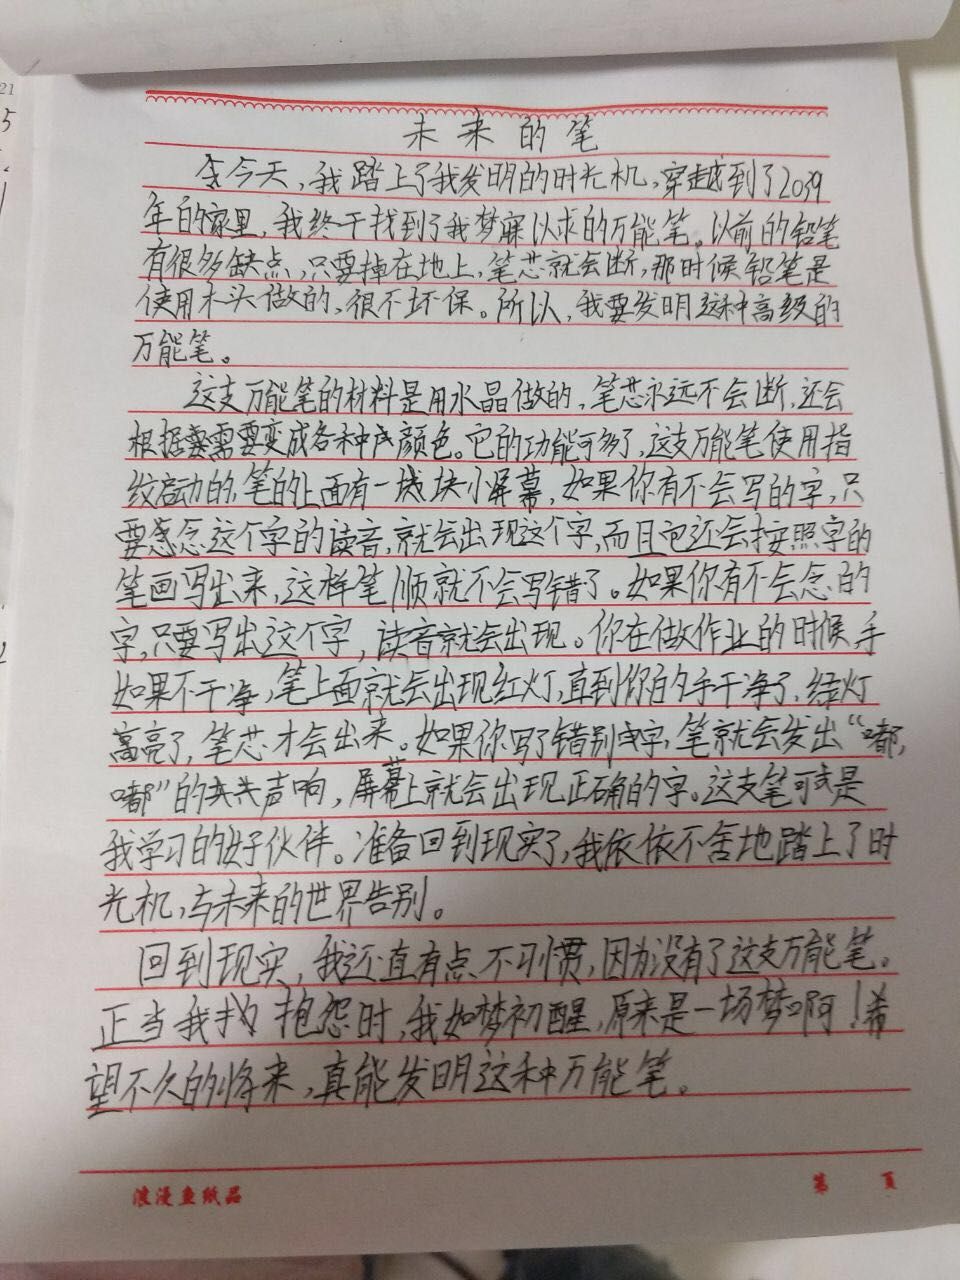 21
5
未来的笔
今天，我踏上了我发明的时光机，穿越到了2039
年的家里，我终于找到了我梦寐以求的万能笔。以前的铅笔
有很多缺点，只要掉在地上，笔芯就会断，那时候铅笔是
使用木头做的，很不环保。所以，我要发明这种高级的
万能笔。
这支万能笔的材料是用水晶做的，笔芯永远不会断，还会
根据需要变成各种颜色。它的功能可多了，这支万能笔使用指
纹启动的，笔的上面有一块小屏幕，如果你有不会写的字，只
要念这个字的读音，就会出现这个字，而且它还会按照字的
笔画写出来，这样笔顺就不会写错了。如果你有不会念的
字，只要写出这个字，读音就会出现。你在做作业的时候，手
如果不干净，笔上面就会出现红灯，直到你的手干净了，绿灯
亮了，笔芯才会出来。如果你写了错别字，笔就会发出“嘟，
嘟”的声响，屏幕上就会出现正确的字。这支笔可是
我学习的好伙伴。准备回到现实了，我依依不舍地踏上了时
光机，与未来的世界告别。
回到现实，我还真有点不习惯，因为没有了这支万能笔。
正当我抱怨时，我如梦初醒，原来是一场梦啊！希
望不久的将来，真能发明这种万能笔。
浪漫鱼纸品
第 页